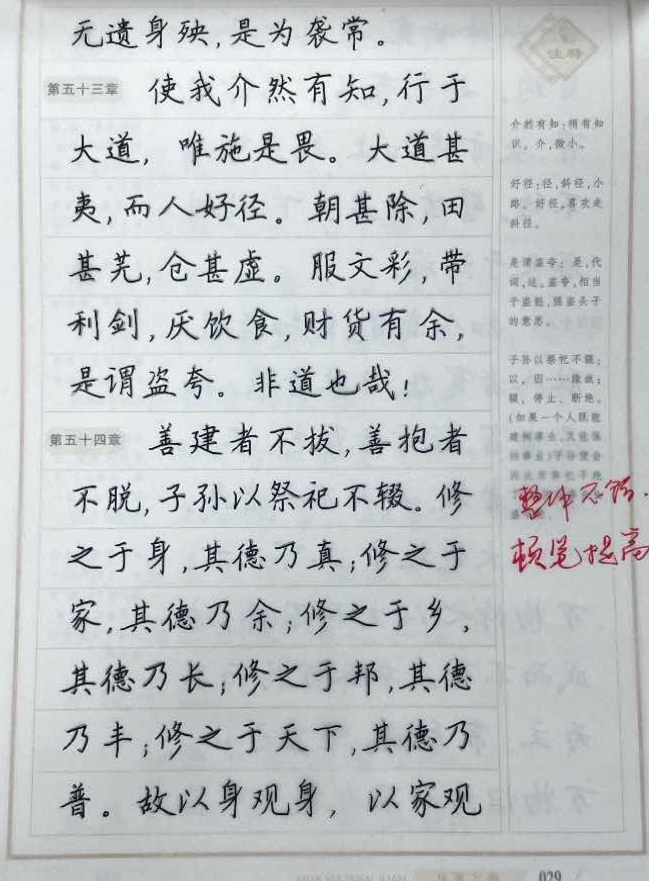 无遗身殃，是为袭常。
第五十三章 使我介然有知，行于
大道，唯施是畏。大道甚
夷，而人好径。朝甚除，田
甚芜，仓甚虚。服文彩，带
利剑，厌饮食，财货有余，
是谓盗夸。非道也哉！
第五十四章 善建者不拔，善抱者
不脱，子孙以祭祀不辍。修
之于身，其德乃真；修之于
家，其德乃余；修之于乡，
其德乃长；修之于邦，其德
乃丰；修之于天下，其德乃
普。故以身观身，以家观
注释
介然有知：稍有知
识。介，微小。
好径：径，斜径，小
路。好径，喜欢走
斜径。
是谓盗夸：是，代
词，这。盗夸，相当
于盗魁，强盗头子
的意思。
子孙以祭祀不辍：
以，因……缘故；
辍，停止、断绝。
(如果一个人既能
建树事业，又能保
持事业)子孙便会
整体不错.
提高
029